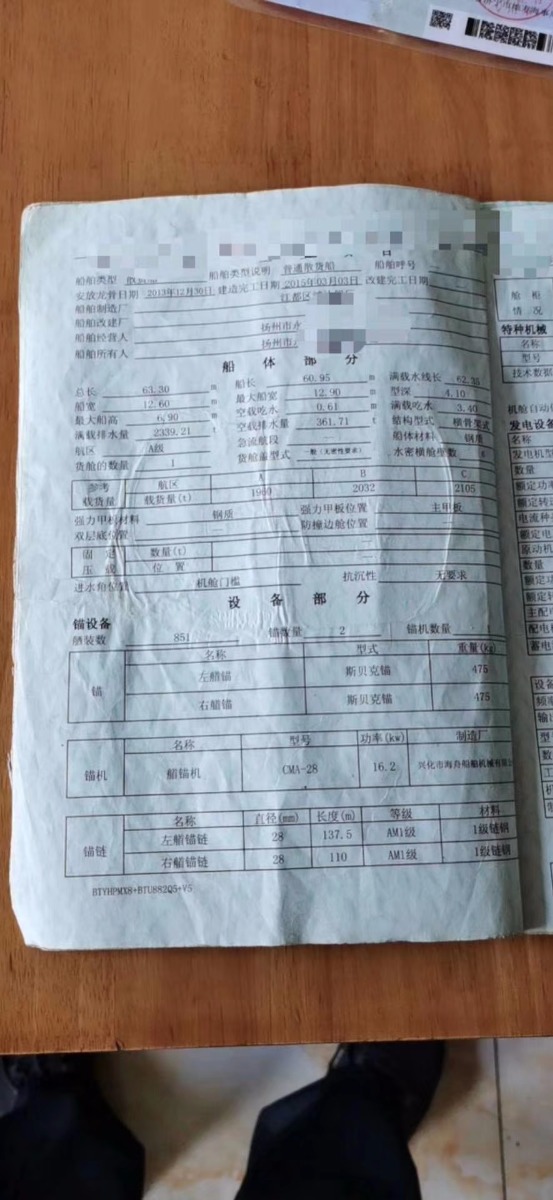 船舶类型 船舶类型说明 普通散货船 船舶呼号 —
安放龙骨日期 2013年12月30日 建造完工日期 2015年03月03日 改建完工日期
船舶制造厂 江都区
船舶改建厂
船舶经营人 扬州市永
船舶所有人 扬州市
船体部分
总长 63.30 m 船长 60.95 m 满载水线长 62.35
船宽 12.60 m 最大船宽 12.90 m 型深 4.10
最大船高 6.90 m 空载吃水 0.61 m 满载吃水 3.40
满载排水量 2339.21 t 空载排水量 361.71 t 结构型式 横骨架式
航区 A级 急流航段 船体材料 钢质
货舱的数量 1 货舱盖型式 一般(无密性要求) 水密横舱壁数 5
参考 航区 A B C
载货量 载货量(t) 1960 2032 2105
强力甲板材料 钢质 强力甲板位置 主甲板
双层底位置 — 防撞边舱位置 —
固定 数量(t) —
压载 位置 —
进水角位置 机舱门槛 抗沉性 无要求
设备部分
锚设备
舾装数 851 锚数量 2 锚机数量
名称 型式 重量(kg)
锚 左艏锚 斯贝克锚 475
右艏锚 斯贝克锚 475
名称 型号 功率(kw) 制造厂
锚机 艏锚机 CMA-28 16.2 兴化市海舟船舶机械有限公
名称 直径(mm) 长度(m) 等级 材料
锚链 左艏锚链 28 137.5 AM1级 1级链钢
右艏锚链 28 110 AM1级 1级链钢
BTYHPMX8+BTU882Q5+V5
船柜
情况
特种机械
名称
型号
技术数据
机舱自动
发电设备
名称
发电机型
数量
额定功
额定转
电流种
额定电
原动机
数量
额定
额定转
主配
配电
蓄电
设备
频率
输
型
数